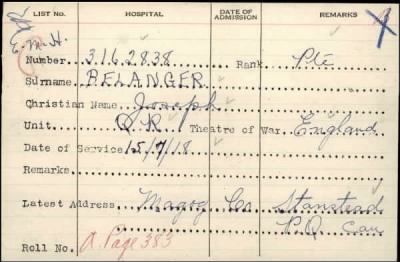 LIST No. HOSPITAL DATE OF ADMISSION REMARKS
E.M.H.
Number 3162838 Rank Pte
Surname BELANGER
Christian Name Joseph
Unit QR 1 Theatre of War England
Date of Service 15/7/18
Remarks
Latest Address Magog Co. Stanstead
P.Q. Can
Roll No. A. Page 383